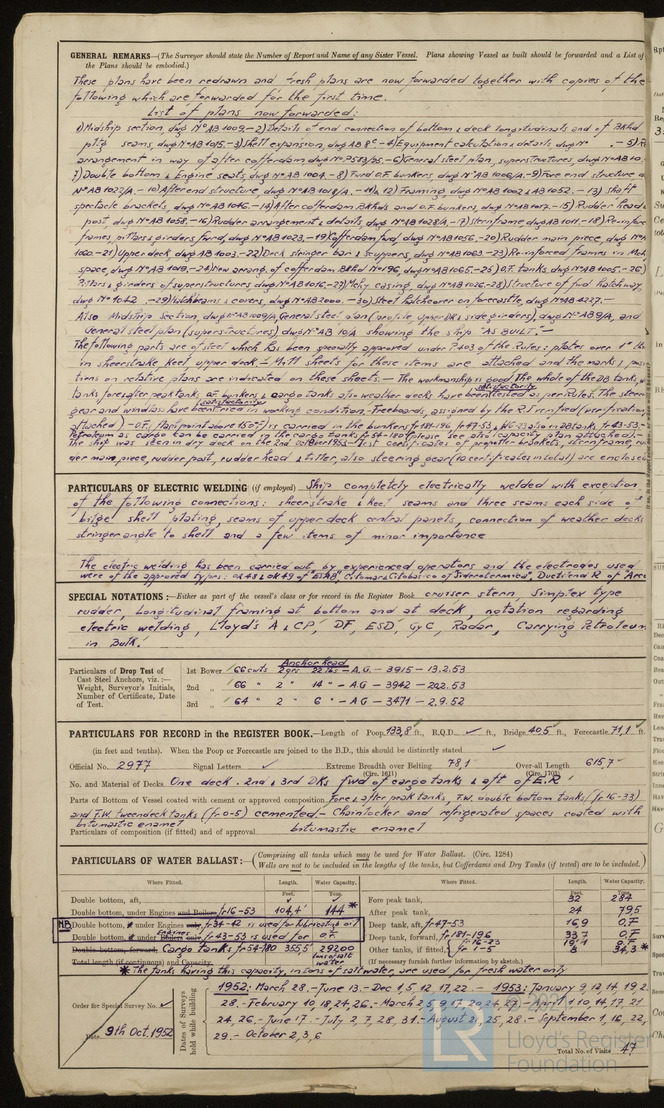 GENERAL REMARKS—(The Surveyor should state the Number of Report and Name of any Sister Vessel. Plans showing Vessel as built should be forwarded and a List of
the Plans should be embodied.)
These plans have been redrawn and fresh plans are now forwarded together with copies of the
following which are forwarded for the first time.
List of plans now forwarded:
1) Midship section, dwg Nº AB 1009 - 2) Details of end connection of bottom & deck longitudinals and of Bkhd
pltg seams, dwg Nº AB 1015 - 3) Shell expansion, dwg AB 8 - 4) Equipment calculation & details dwg Nº
arrangement in way of after cofferdam, dwg Nº - 6) General steel plan, superstructures, dwg Nº AB 10
7) Double bottom & Engine seats, dwg Nº AB 1004 - 8) Fwd O.F. bunkers dwg Nº AB 1006/A - 9) Fore end structure
Nº AB 1022/A - 10) After end structure dwg Nº AB 1018/A - 11) & 12) Framing, dwg Nº AB 1002 & AB 1052 - 13) Shaft
spectacle brackets, dwg Nº AB 1046 - 14) After cofferdam Bkhds and O.F. bunkers dwg Nº AB 1017 - 15) Rudder head &
post, dwg Nº AB 1058 - 16) Rudder arrangement & details, dwg Nº AB 1028/A - 17) Sternframe, dwg AB 1011 - 18) Reinforc
frames pillars & girders forwd, dwg Nº AB 1023 - 19) Cofferdam fwd, dwg Nº AB 1056 - 20) Rudder main piece, dwg Nº
1060 - 21) Upper deck, dwg Nº AB 1003 - 22) Deck stringer bar & scuppers, dwg Nº AB 1063 - 23) Reinforced frames in Mchy
space, dwg Nº AB 1019 - 24) New arrang. of cofferdam Bkhd Nº 196, dwg Nº AB 1065 - 25) O.F. tanks dwg Nº AB 1005 - 26)
Pillars & girders of superstructures dwg Nº AB 1016 - 27) Mchy casing, dwg Nº AB 1026 - 28) Structure of fwd hatchway,
dwg Nº 1042 - 29) Hatchbeams & covers, dwg Nº AB 2000 - 30) Steel hatchcover on forecastle, dwg Nº AB 4227.-
Also Midship section, dwg Nº AB 1009/A, General steel plan (profile upper DK & side girders) dwg Nº AB 9/A, and
General steel plan (superstructures) dwg Nº AB 10/A showing the ship "AS BUILT".-
The following parts are of steel which has been specially approved under P.403 of the Rules: plates over 1" thk
in sheerstrake keel upper deck.- Mill sheets for these items are attached and the marks & posi
tions on relative plans are indicated on these sheets.- The workmanship is good. The whole of the DB tanks,
tanks fore & after peak tanks, O.F. bunkers & cargo tanks also weather decks have been satisfactorily tested as per Rules. The steer
gear and windlass have been tried satisfactorily in working condition. Freeboards, assigned by the R.I. verified (verification
attached) - O.F. (flash point above 150°F) is carried in the bunkers fr 181-196 fr 47-53 & in DB tanks fr 43-53.-
Petroleum as cargo can be carried in the cargo tanks fr 54-180 (please see also capacity plan attached).-
The ship was seen in dry dock on the 2nd October 1953 - Test certificates of propeller brackets, sternframe, ru
der main piece, rudder post, rudder head & tiller, also steering gear (10 certificates in total) are enclosed
PARTICULARS OF ELECTRIC WELDING (if employed) Ship completely electrically welded with exception
of the following connections: sheerstrake & keel seams and three seams each side of
bilge shell plating, seams of upper deck central panels, connection of weather decks
stringer angle to shell and a few items of minor importance
The electric welding has been carried out by experienced operators and the electrodes used
were of the approved types: OK 48 & OK 49 of "ESAB", Citomar & Citobasico of Siderotermica", Ductilend R of "Arcos
SPECIAL NOTATIONS :—Either as part of the vessel's class or for record in the Register Book cruiser stern, Simplex type
rudder, Longitudinal framing at bottom and at deck, notation regarding
electric welding, Lloyd's A & CP, DF, ESD, GyC, Radar, Carrying Petroleum
in Bulk.
Particulars of Drop Test of
Cast Steel Anchors, viz. :—
Weight, Surveyor's Initials,
Number of Certificate, Date
of Test.
Anchor head
1st Bower 66 cwts 2 qrs 22 lbs - A.G - 3915 - 13.2.53
2nd „ 66 „ 2 „ 14 „ - A.G - 3942 - 20.2.53
3rd „ 64 „ 2 „ 6 „ - A.G - 3471 - 2.9.52
PARTICULARS FOR RECORD in the REGISTER BOOK.—Length of Poop 133,8 ft., R.Q.D. ft., Bridge 40,5 ft., Forecastle 71,1 ft.
(in feet and tenths). When the Poop or Forecastle are joined to the B.D., this should be distinctly stated
Official No. 2977 Signal Letters Extreme Breadth over Belting 78,1 Over-all Length 615,7
(Circ. 1611) (Circ. 1703)
No. and Material of Decks One deck. 2nd & 3rd DKs fwd of cargo tanks & aft of E.R.
Parts of Bottom of Vessel coated with cement or approved composition Fore & after peak tanks, F.W. double bottom tanks (fr 16-33)
and F.W. tweendeck tanks (fr 0-5) cemented - Chainlocker and refrigerated spaces coated with
bitumastic enamel
Particulars of composition (if fitted) and of approval bitumastic enamel
PARTICULARS OF WATER BALLAST:—(Comprising all tanks which may be used for Water Ballast. (Circ. 1284)
Wells are not to be included in the lengths of the tanks, but Cofferdams and Dry Tanks (if tested) are to be included.)
Where Fitted. Length. Water Capacity. Where Fitted. Length. Water Capacity.
Feet. Tons. Feet. Tons.
Double bottom, aft,
Double bottom, under Engines and Boilers fr 16-53 104,4' 144 *
NB Double bottom, if under Engines only, fr 34-42 is used for lubricating oil
Double bottom, if under Engines Boilers only fr 43-53 is used for O.F.
Double bottom, forward, Cargo tanks fr 54-180 355,5' 29200
Total length (if continuous) and Capacity tons of salt water
Fore peak tank, 32 284
After peak tank, 24 795
Deep tank, aft, fr 47-53 16,9 O.F
Deep tank, forward, fr 181-196 33,7 O.F
Other tanks, if fitted, fr 16-23 19,7 O.F
fr 1-5 8 34,3 *
(If necessary furnish further information by sketch.)
* The tanks having this capacity, in tons of saltwater, are used for fresh water only
Order for Special Survey No.
Date 9th Oct. 1952
Dates of Surveys held while building
1952: March 28. - June 13. - Dec 1, 5, 12, 17, 22. - 1953: January 9, 12, 14, 19, 2
28. - February 10, 18, 24, 26. - March 2 5, 9, 17, 20, 24, 27. - April 1, 10, 14, 17, 21
24, 26. - June 17. - July 2, 7, 28, 31. - August 21, 25, 28. - September 1, 16, 22,
29. - October 2, 3, 6
Total No. of Visits 47
LR
Lloyd's Register
Foundation